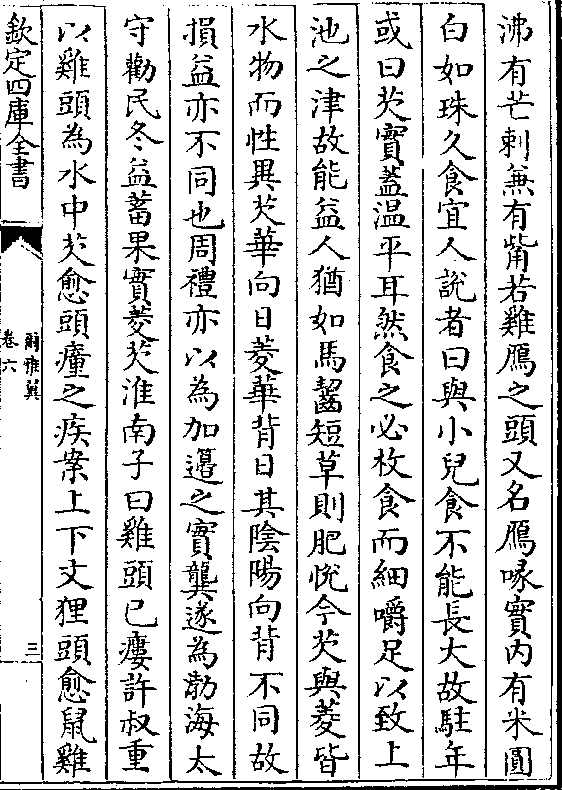 沸有芒刺兼有觜若雞鴈之頭又名鴈喙實内有米圓
白如珠久食宜人説者曰與小兒食不能長大故駐年
或曰芡實蓋温平耳然食之必枚食而細嚼足以致上
池之津故能益人猶如馬齧短草則肥悅今芡與菱皆
水物而性異芡華向日菱華背日其陰陽向背不同故
損益亦不同也周禮亦以為加籩之實龔遂為渤海太
守勸民冬益蓄果實菱芡淮南子曰雞頭已瘻許叔重
以雞頭為水中芡愈頭瘇之疾案上下文狸頭愈鼠雞
欽定四庫全書
爾雅翼
卷六
三